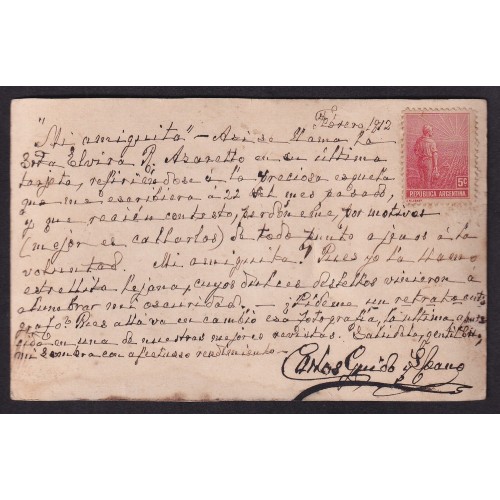 Febrero 1912
"Mi amiguita" — Asi se llama la
Srta Elvira R. Azaretto en su última
tarjeta, refiriéndose á la preciosa esquela
que me escribiera á 22 del mes pasado,
y que recién contesto, perdóneme, por motivos
(mejor es callarlos) de todo punto ajenos á la
voluntad. Mi amiguita? Pues yo la llamo
estrellita lejana, cuyos dulces destellos vinieron á
alumbrar mi oscuridad. — ¿Pídeme un retrato
Pues allá va en cambio esa fotografía, la última
en una de nuestras mejores revistas. Salúdola, gentil
con afectuoso rendimiento.
Carlos Guido y Spano
5c
REPUBLICA ARGENTINA